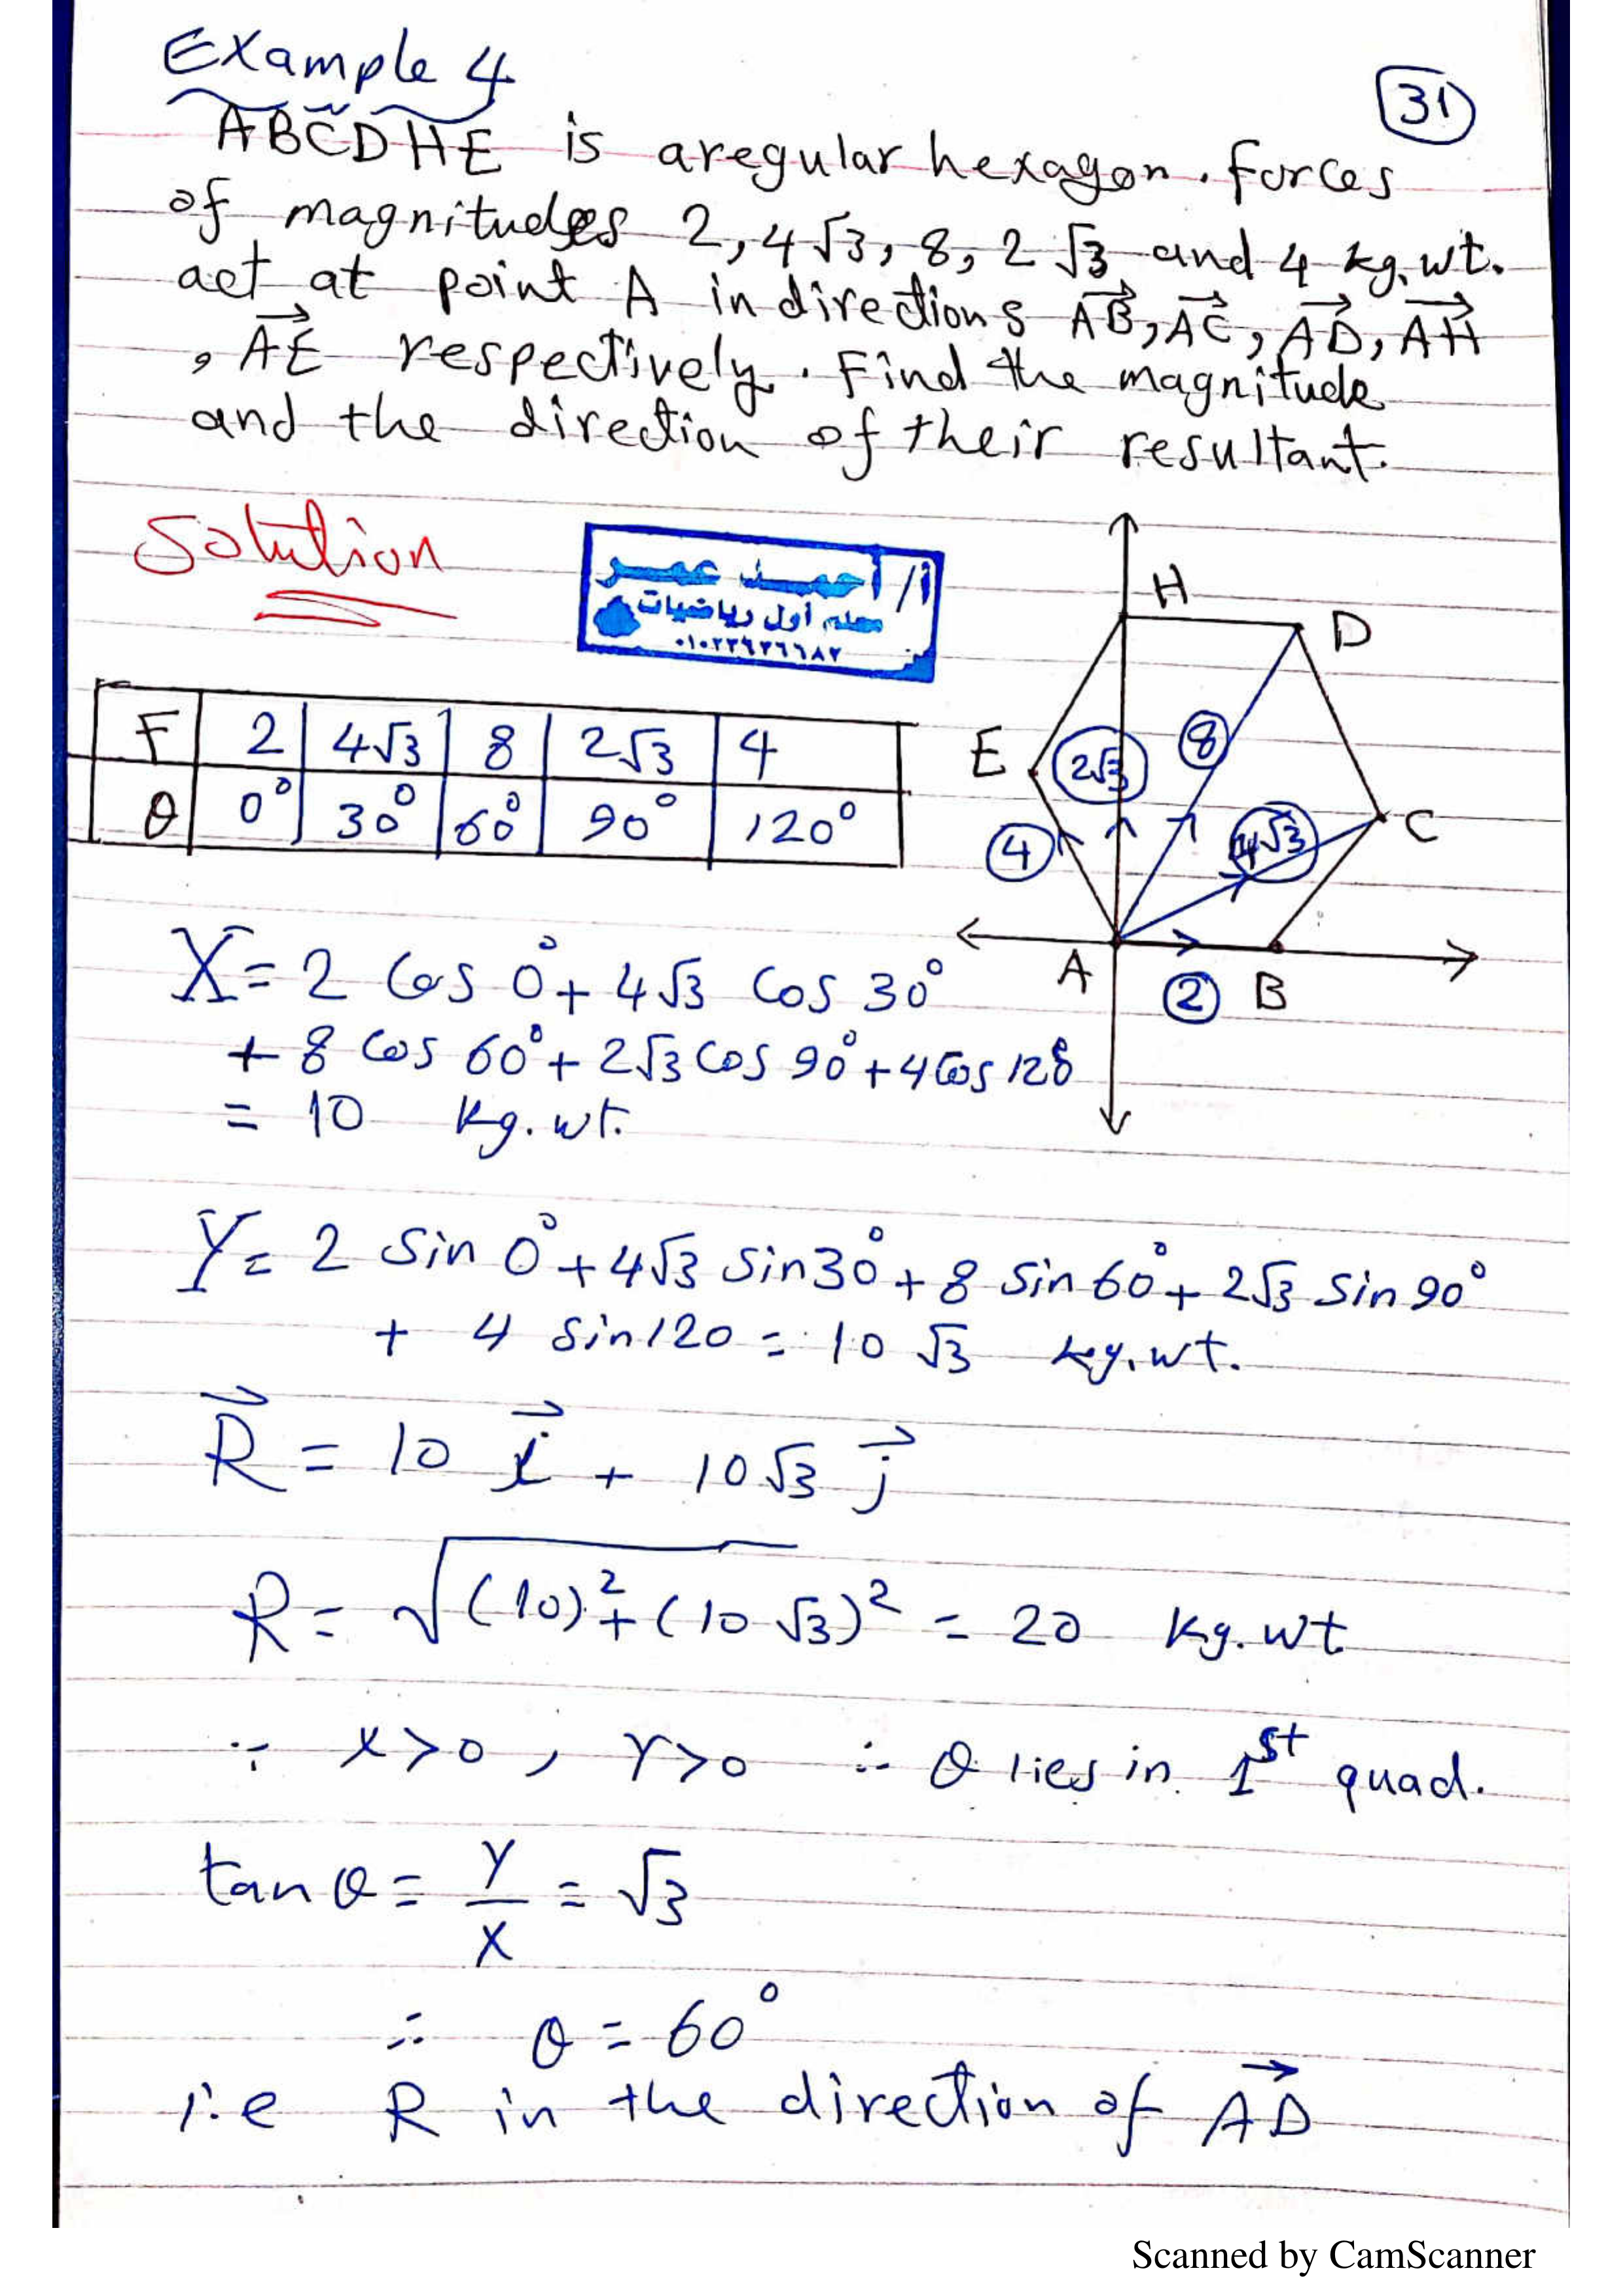 Example 4
31
ABCDHE is aregular hexagon. Forces
of magnitudes 2, 4√3, 8, 2√3 and 4 kg.wt.
act at point A in directions AB, AC, AD, AH
, AE respectively. Find the magnitude
and the direction of their resultant.
Solution
أ/ أحمد عمر
معلم أول رياضيات
H
D
E
2√3
8
4
4√3
C
A
2
B
F 2 4√3 8 2√3 4
θ 0° 30° 60° 90° 120°
X = 2 Cos 0° + 4√3 Cos 30°
+ 8 Cos 60° + 2√3 Cos 90° + 4 Cos 120
= 10 kg.wt.
Y = 2 Sin 0° + 4√3 Sin 30° + 8 Sin 60° + 2√3 Sin 90°
+ 4 Sin 120 = 10 √3 kg.wt.
R = 10 i + 10√3 j
R = √(10)² + (10 √3)² = 20 kg.wt
∵ X > 0, Y > 0 ∴ θ lies in 1st quad.
tan θ = Y/X = √3
∴ θ = 60°
i.e R in the direction of AD
Scanned by CamScanner